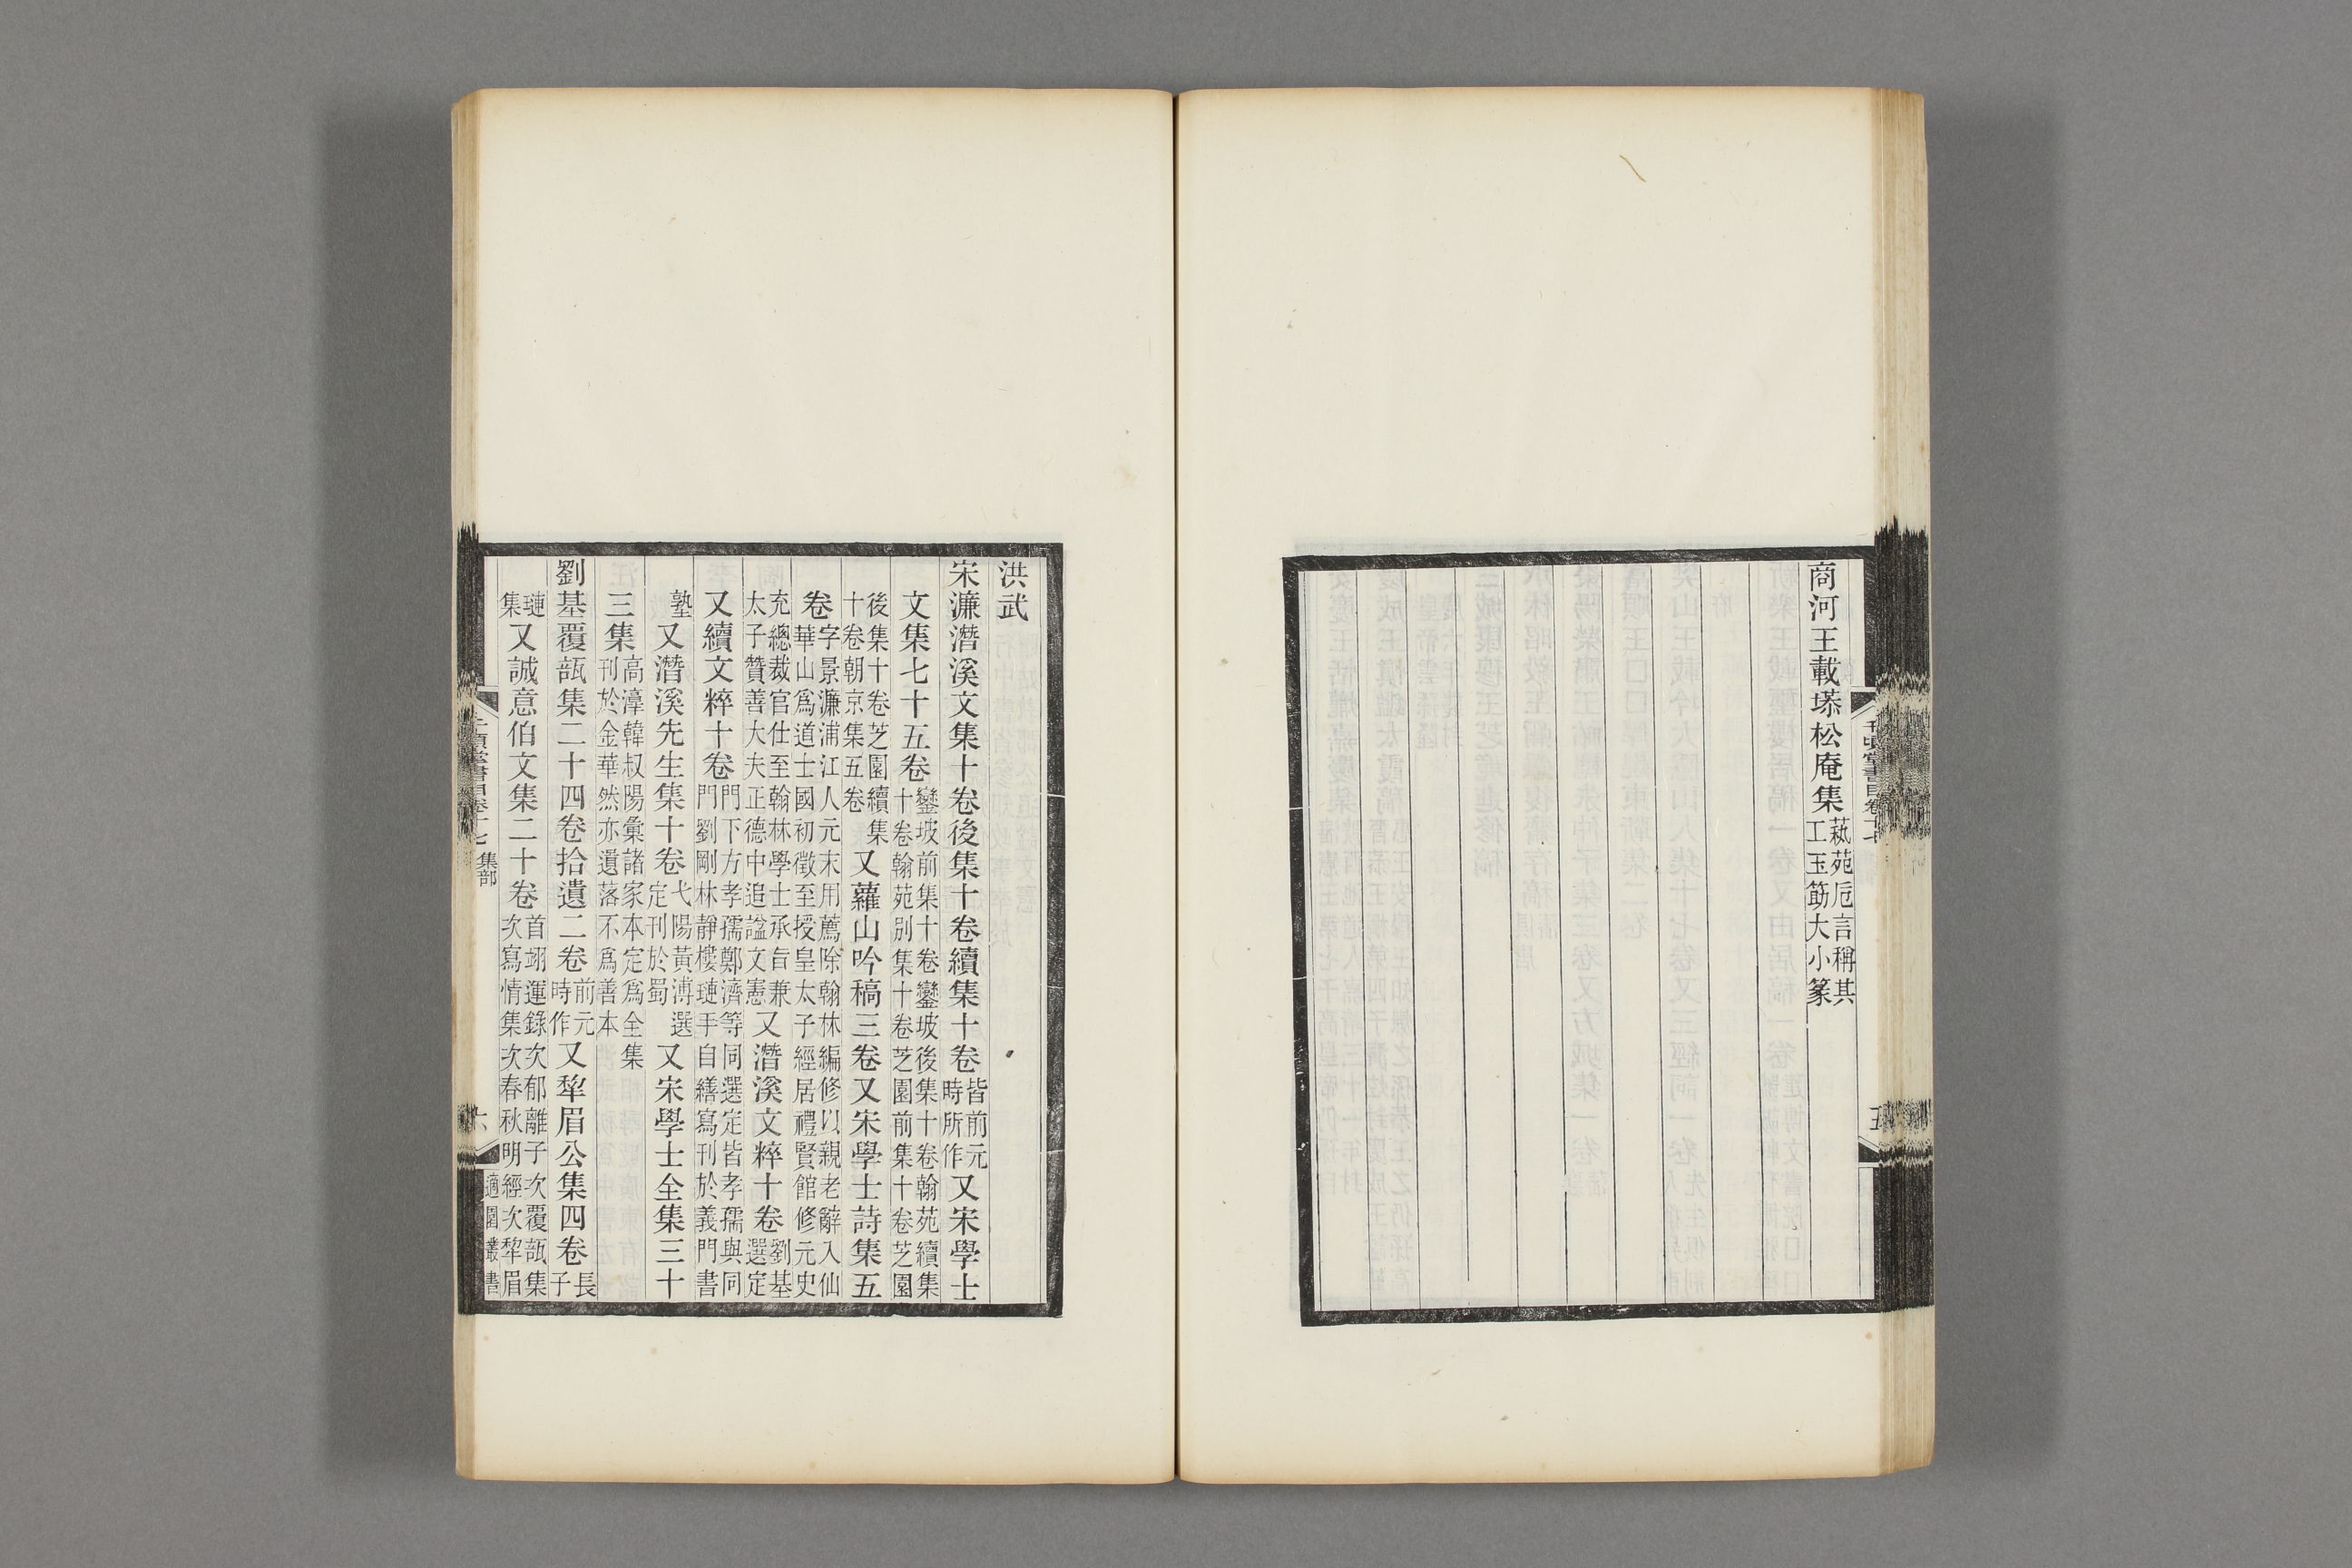 商河王載塨松庵集 蓺苑卮言稱其工玉筯大小篆
千頃堂書目卷十七
五
洪武
宋濂潛溪文集十卷後集十卷續集十卷 皆前元時所作 又宋學士
文集七十五卷 鑾坡前集十卷鑾坡後集十卷翰苑續集十卷翰苑別集十卷芝園前集十卷芝園
後集十卷芝園續集十卷朝京集五卷 又蘿山吟稿三卷又宋學士詩集五
卷 字景濂浦江人元末用薦除翰林編修以親老辭入仙華山爲道士國初徵至授皇太子經居禮賢館修元史
充總裁官仕至翰林學士承旨兼太子贊善大夫正德中追諡文憲 又潛溪文粹十卷 劉基選定
又續文粹十卷 門下方孝孺鄭濟等同選定皆孝孺與同門劉剛林靜樓璉手自繕寫刊於義門書
塾 又潛溪先生集十卷 弋陽黃溥選定刊於蜀 又宋學士全集三十
三集 高濘韓叔陽彙諸家本定爲全集刊於金華然亦遺落不爲善本
劉基覆瓿集二十四卷拾遺二卷 前元時作 又犂眉公集四卷 長子
璉集 又誠意伯文集二十卷 首翊運錄次郁離子次覆瓿集次寫情集次春秋明經次犂眉
千頃堂書目卷十七 集部
六
適園叢書